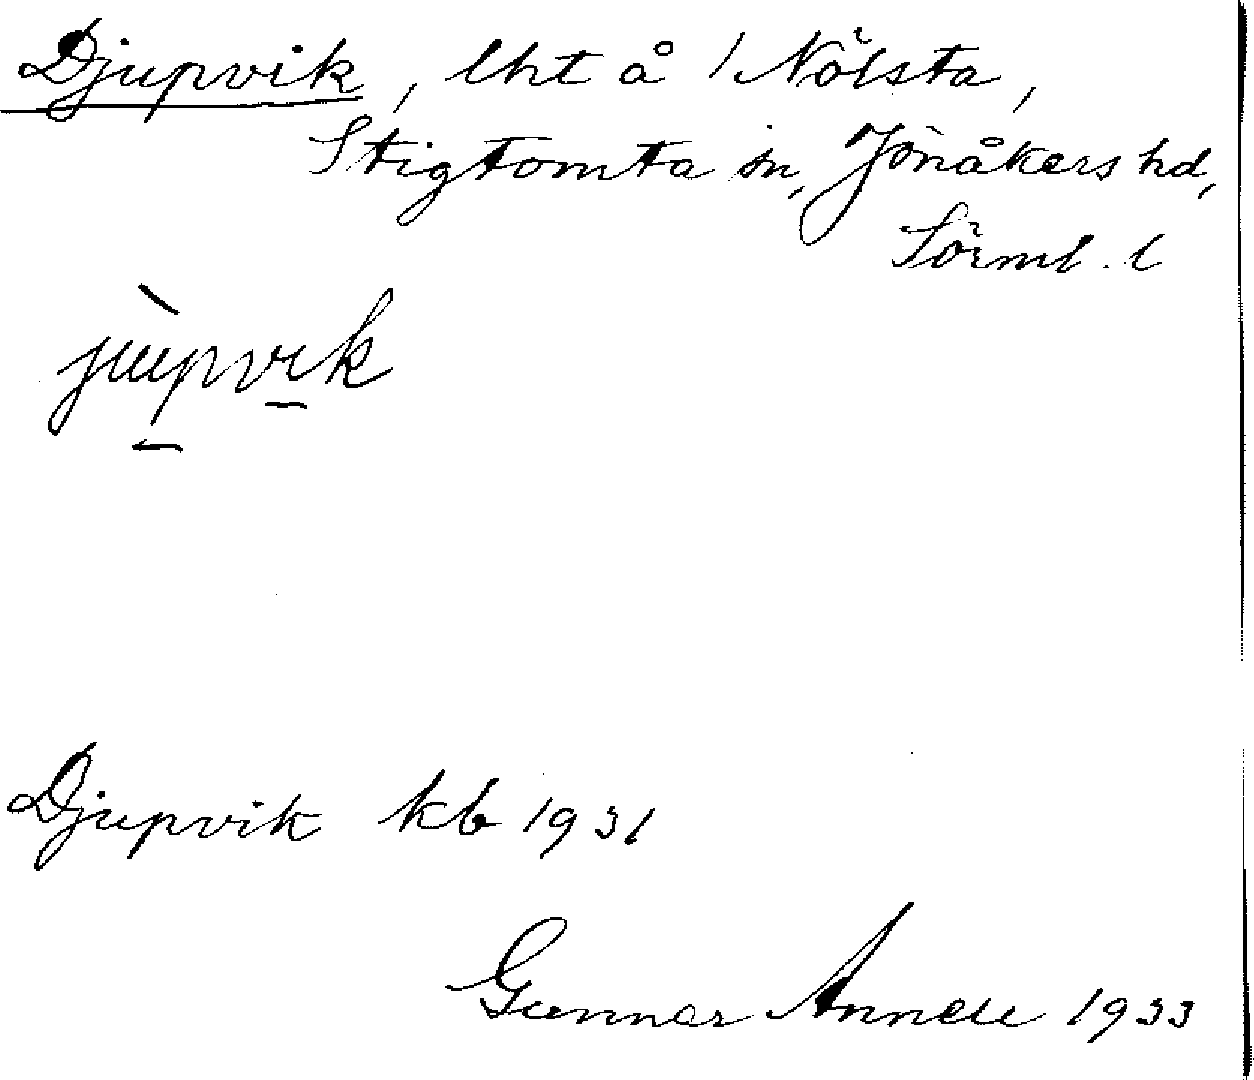 Djupvik, lht å /Nölsta,
Stigtomta sn, Jönåkers hd,
Sörml. l
jùpvik
Djupvik kb 1931
Gunnar Annell 1933